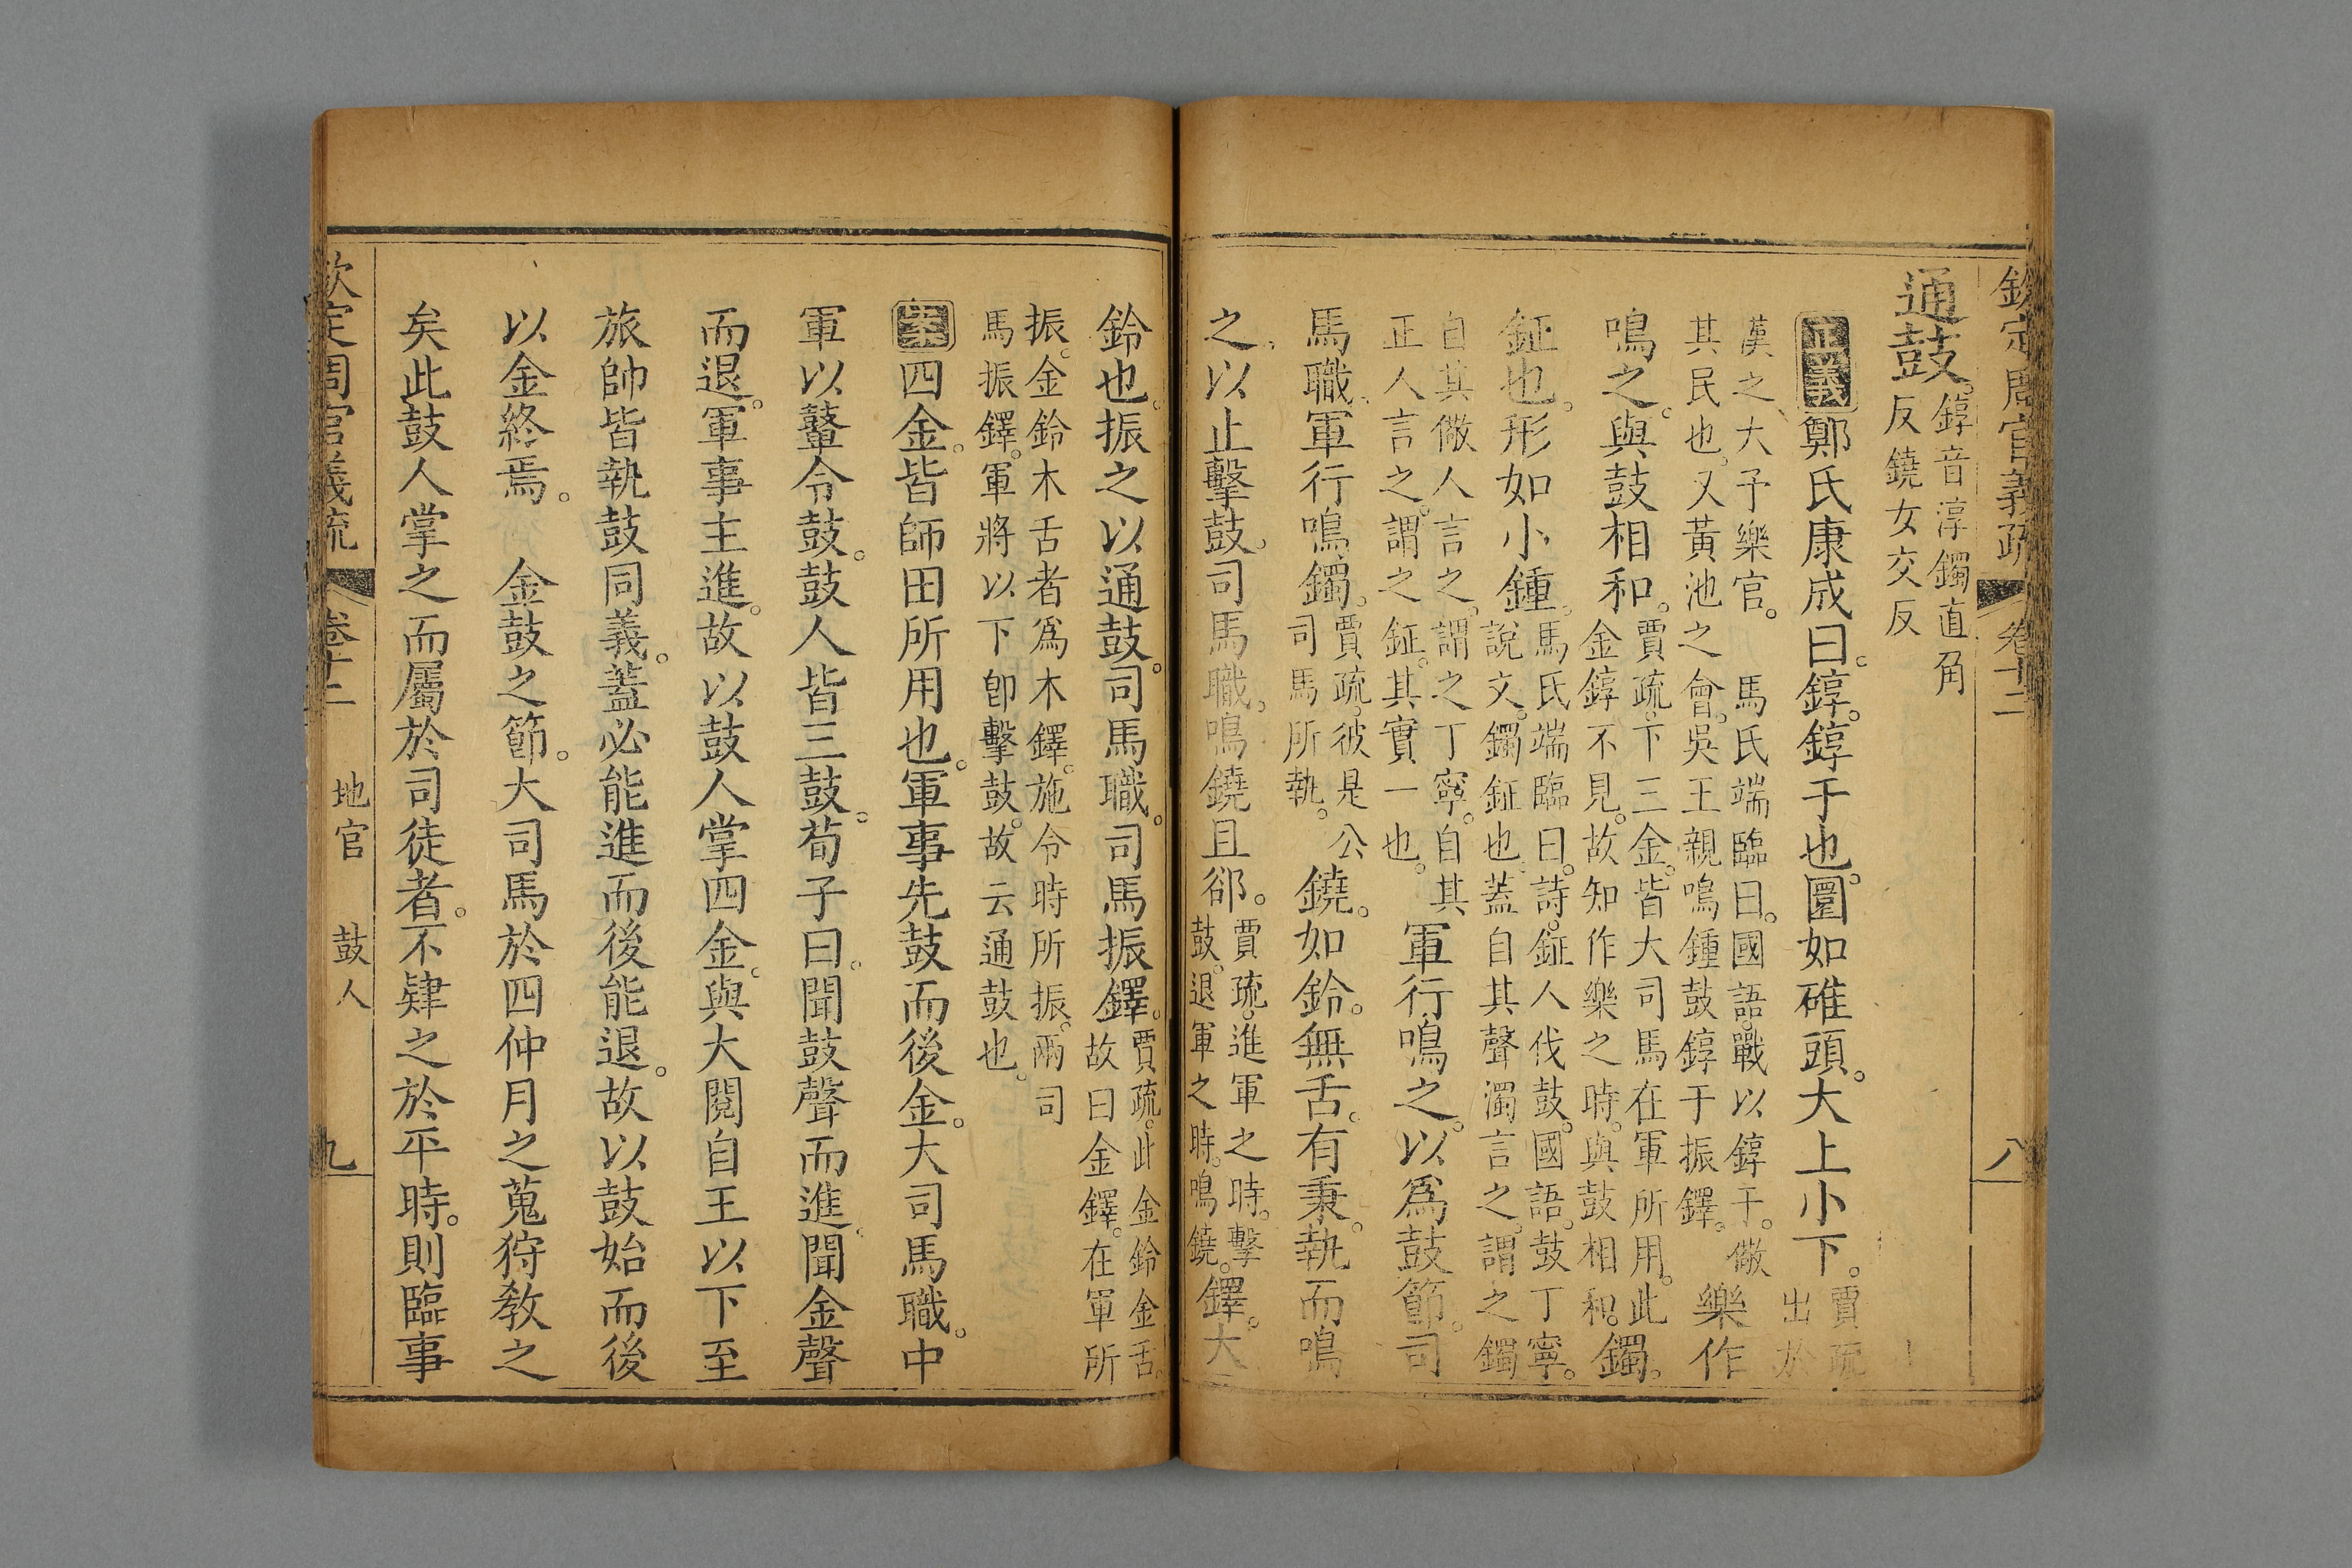 欽定周官義疏 卷十二 八
通鼓。錞音淳鐲直角
反鐃女交反
正義鄭氏康成曰。錞。錞于也。圜如碓頭。大上小下。賈疏
出於
漢之大予樂官。 馬氏端臨曰。國語。戰以錞于。儆
其民也。又黃池之會。吳王親鳴鍾鼓錞于振鐸。樂作
鳴之。與鼓相和。賈疏。下三金。皆大司馬在軍所用。此
金錞不見。故知作樂之時。與鼓相和。鐲。
鉦也。形如小鍾。馬氏端臨曰。詩。鉦人伐鼓。國語。鼓丁寧。
說文。鐲鉦也。蓋自其聲濁言之。謂之鐲
自其儆人言之。謂之丁寧。自其
正人言之。謂之鉦。其實一也。軍行鳴之。以爲鼓節。司
馬職。軍行鳴鐲。賈疏。彼是公
司馬所執。鐃。如鈴。無舌。有秉。執而鳴
之。以止擊鼓。司馬職。鳴鐃且郤。賈疏。進軍之時。擊
鼓。退軍之時。鳴鐃。鐸。大
鈴也。振之以通鼓。司馬職。司馬振鐸。賈疏。此金鈴金舌。
故曰金鐸。在軍所
振。金鈴木舌者爲木鐸。施令時所振。兩司
馬振鐸。軍將以下卽擊鼓。故云通鼓也。
四金。皆師田所用也。軍事先鼓而後金。大司馬職。中
軍以鼙令鼓。鼓人皆三鼓。荀子曰。聞鼓聲而進。聞金聲
而退。軍事主進。故以鼓人掌四金。與大閱自王以下至
旅帥皆執鼓同義。蓋必能進而後能退。故以鼓始而後
以金終焉。 金鼓之節。大司馬於四仲月之蒐狩教之
矣此鼓人掌之而屬於司徒者。不肄之於平時。則臨事
欽定周官義疏 卷十二 地官 鼓人 九